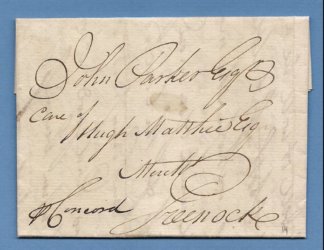 John Parker Esqr
Care of
Hugh Matthie Esq
Mercht
Greenock
pr Concord